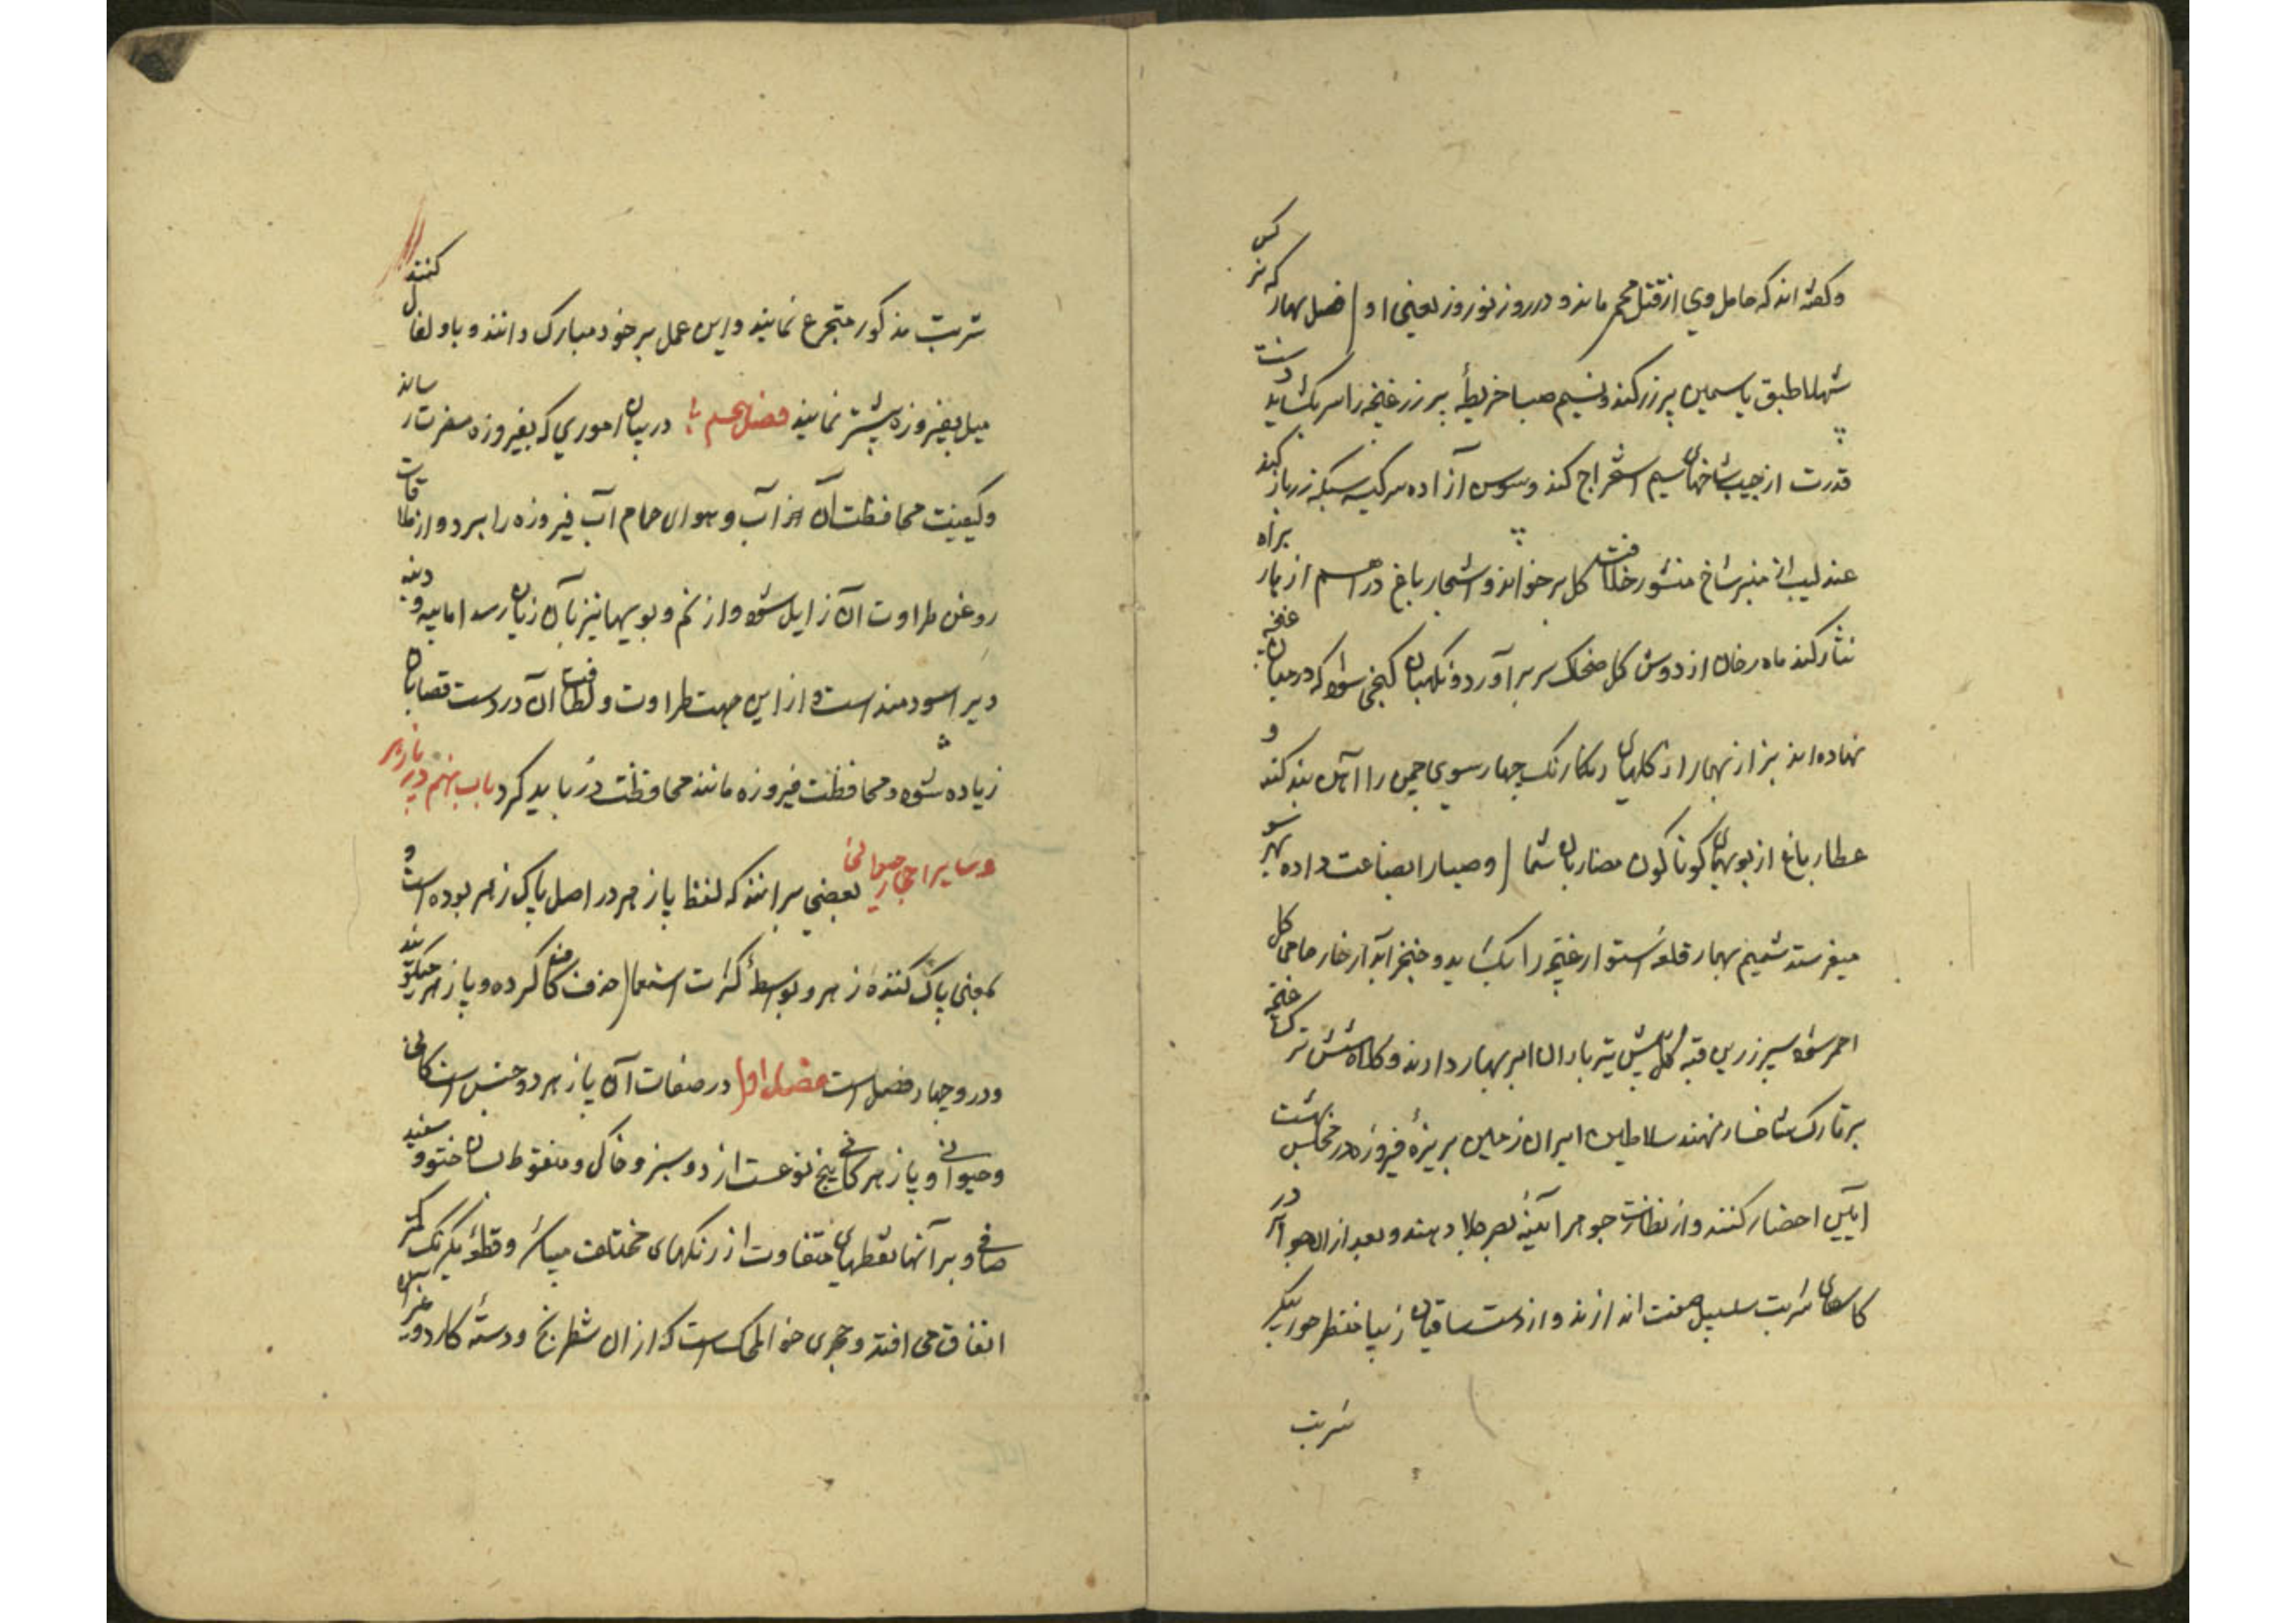 وکفته اند که حامل وی از قتل محر ماند و در روز نوروز یعنی اول فصل بهار که نرکس
شهلا طبق یاسمین پر زر کند و نسیم صبا خریطهٔ پر زر غنچه را سر بکشاید دست
قدرت از جیب شاخهای سیم استخراج کند و سوسن آزاده سر کیسه سیکه زر باز کند
عندلیب از منبر شاخ منشور خلافت کل بر خواند و اشجار باغ دراهم از بار براه
نثار کند ماه رخان از دوش کل ضحاک سر بر آورد و نکهبان کنجی شود که در میان غنچه
نهاده اند بزاز نهار از کلهای رنکارنک چهار سوی چمن را آین بند کند و
عطار باغ از بویهای کوناکون مضاربان شمال و صبا را بضاعت داده بهر سو
میفرستد شمیم بهار قلعه استوار غنچه را بکشاید و خنجر آبدار خار حامی کل
احمر شود سپر زرین قبه کل پیش تیر باران ابر بهار دارند و کلاه شش ترک غنچه
بر تارک شاخسار نهند سلاطین ایران زمین بر یزهٔ فیروزه در مجلس بهشت
آیین احضار کنند و از نظارت جوهر آینهٔ بصر جلا دهند و بعد از ان جواهر در
کاسهای شربت سلسبیل صفت اندازند و از دست ساقیان زیبا منظر حور پیکر
شربت
شربت مذکور متجرع نمایند و این عمل بر خود مبارک دانند و باو تفال کنند
میل بفیروزه بیشتر نمایند فصل پنجم در بیان اموری که بفیروزه مضرت رساند
و کیفیت محافظت آن از آب و هوای حمام آب فیروزه را ببرد و از ملاقات
روغن طراوت آن زایل شود و از نم و بویها نیز بآن زیان رسد اما پیه و دنبه
ویرا سودمند است و از این جهت طراوت و لطافت آن در دست قصابان
زیاده شود و محافظت فیروزه مانند محافظت در باید کرد باب نهم در پازهر
و سایر احجار حیوانی بعضی بر انند که لفظ پازهر در اصل پاک زهر بوده است و
بمعنی پاک کنندهٔ زهر و بواسطهٔ کثرت استعمال حذف کاف کرده و پازهر میکویند
و در و چهار فصل است فصل اول در صفات آن پازهر دو جنس است کانی
و حیوانی و پازهر کانی پنج نوعست زرد و سبز و خاکی و منقوط بسان ختو و سفید
صافی و بر آنها نقطهای متفاوت از رنکهای مختلف میباشد و قطعهٔ یکرنک کمتر
اتفاق می افتد و حجری حوالمحک است که از ان شطرنج و دستهٔ کارد و